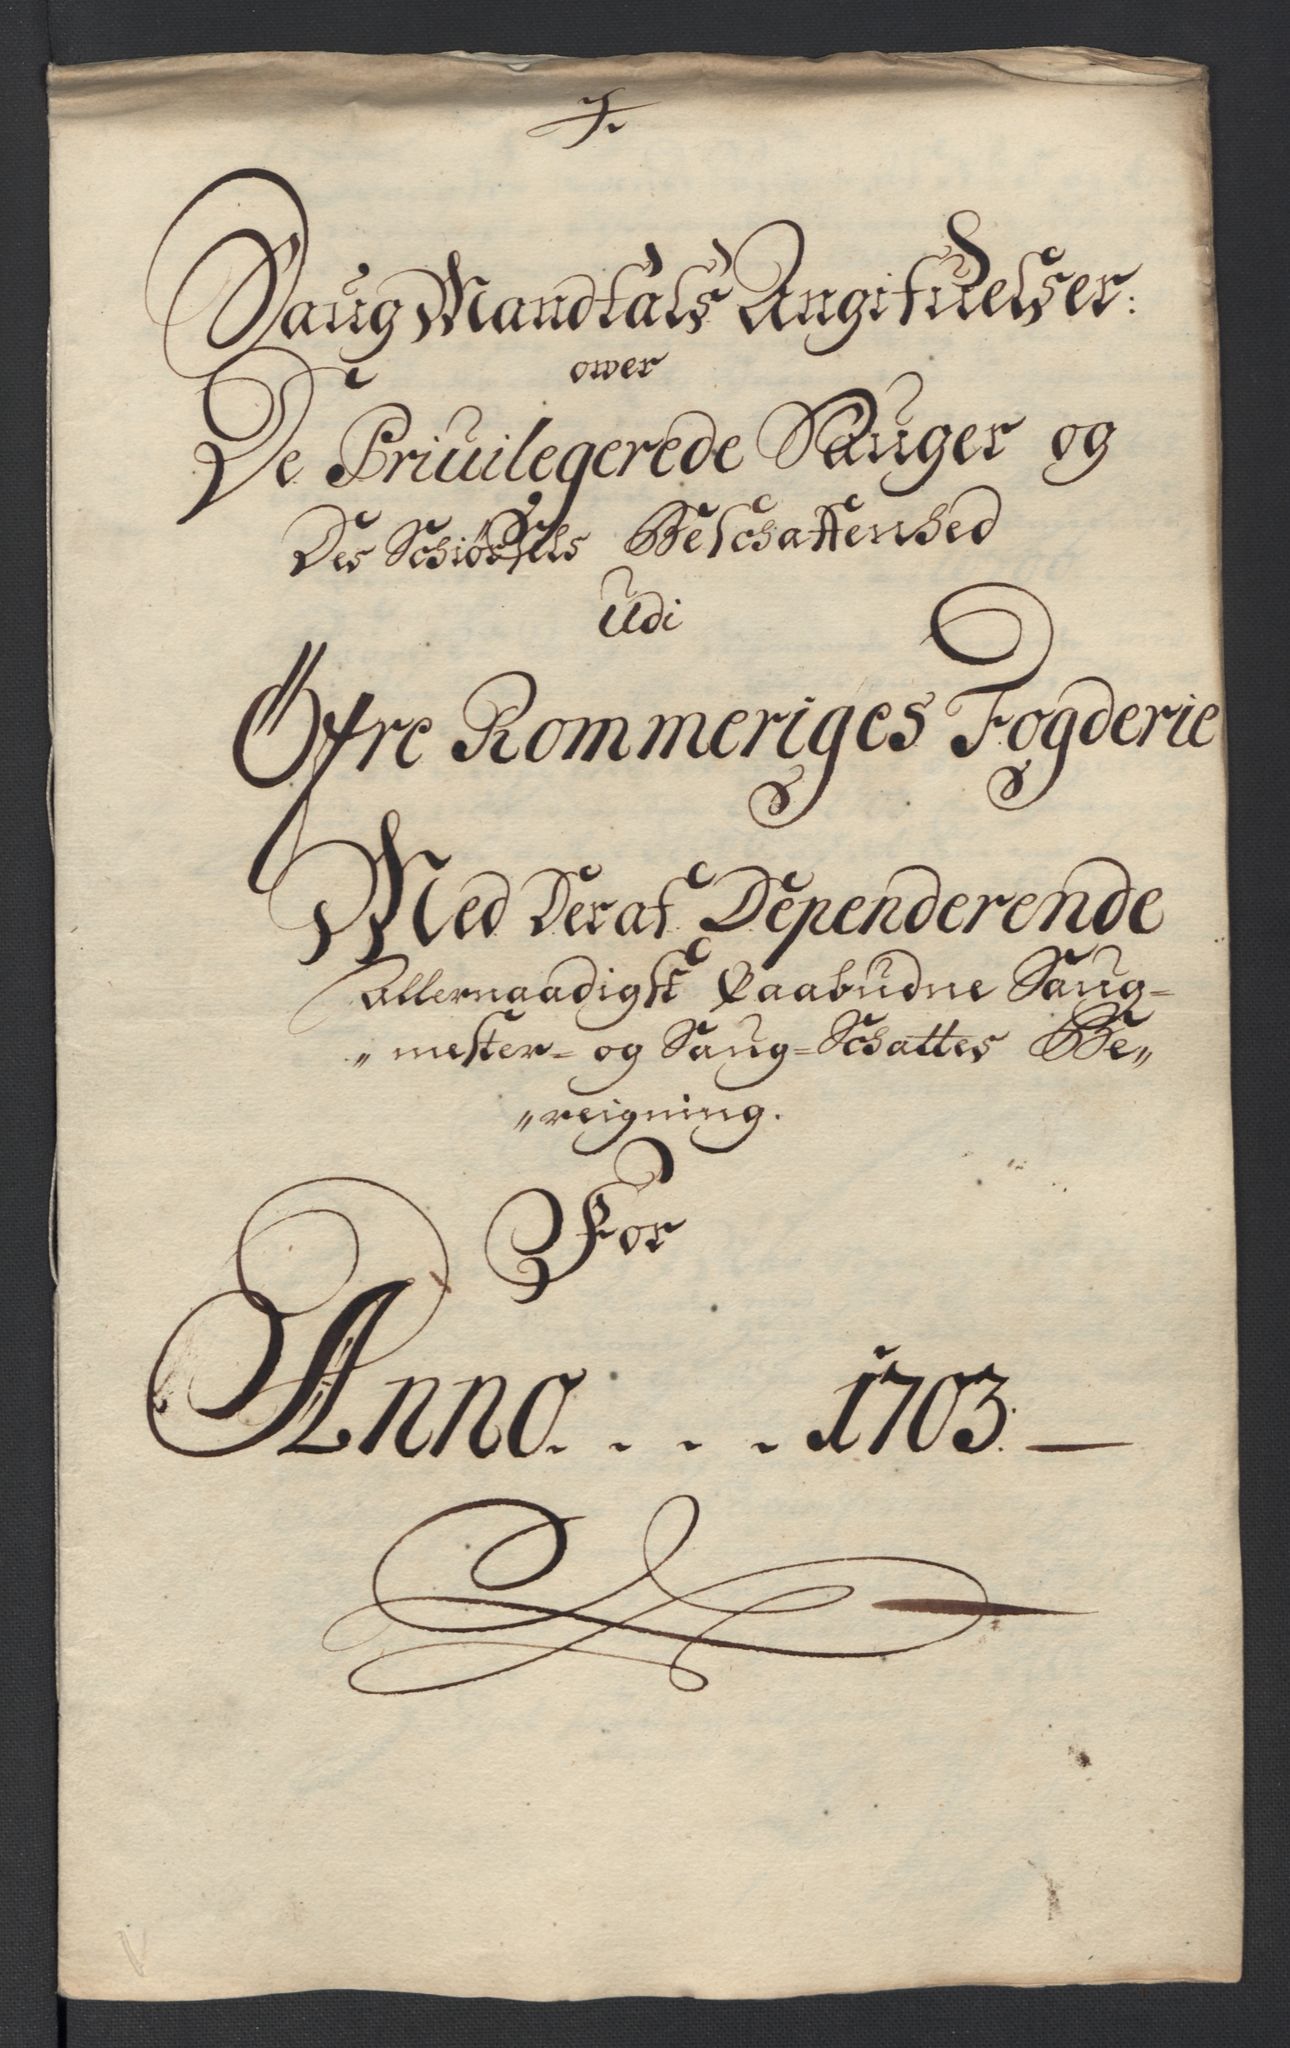 Saug Mandtals Angifuelser:
ower
De Priuilegerede Sauger og
Des Beschaffenhed
Udi
Öfre Rommeriges Fogderie
Med Deraf Dependerende
Allernaadigst Paabudne Saug=
„mester= og Saug=Schattes Be„
„reigning.
For
Anno. . . . 1703.